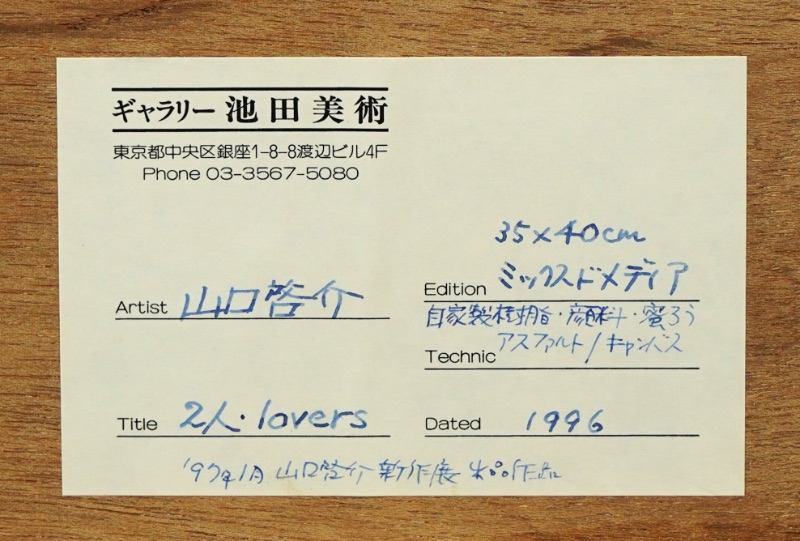 ギャラリー 池田美術
東京都中央区銀座1-8-8渡辺ビル4F
Phone 03-3567-5080
35×40cm
Artist 山口啓介
Edition ミックスドメディア
自家製樹脂・顔料・蜜ろう
Technic アスファルト/キャンバス
Title 2人・lovers
Dated 1996
'97年1月 山口啓介新作展 出品作品